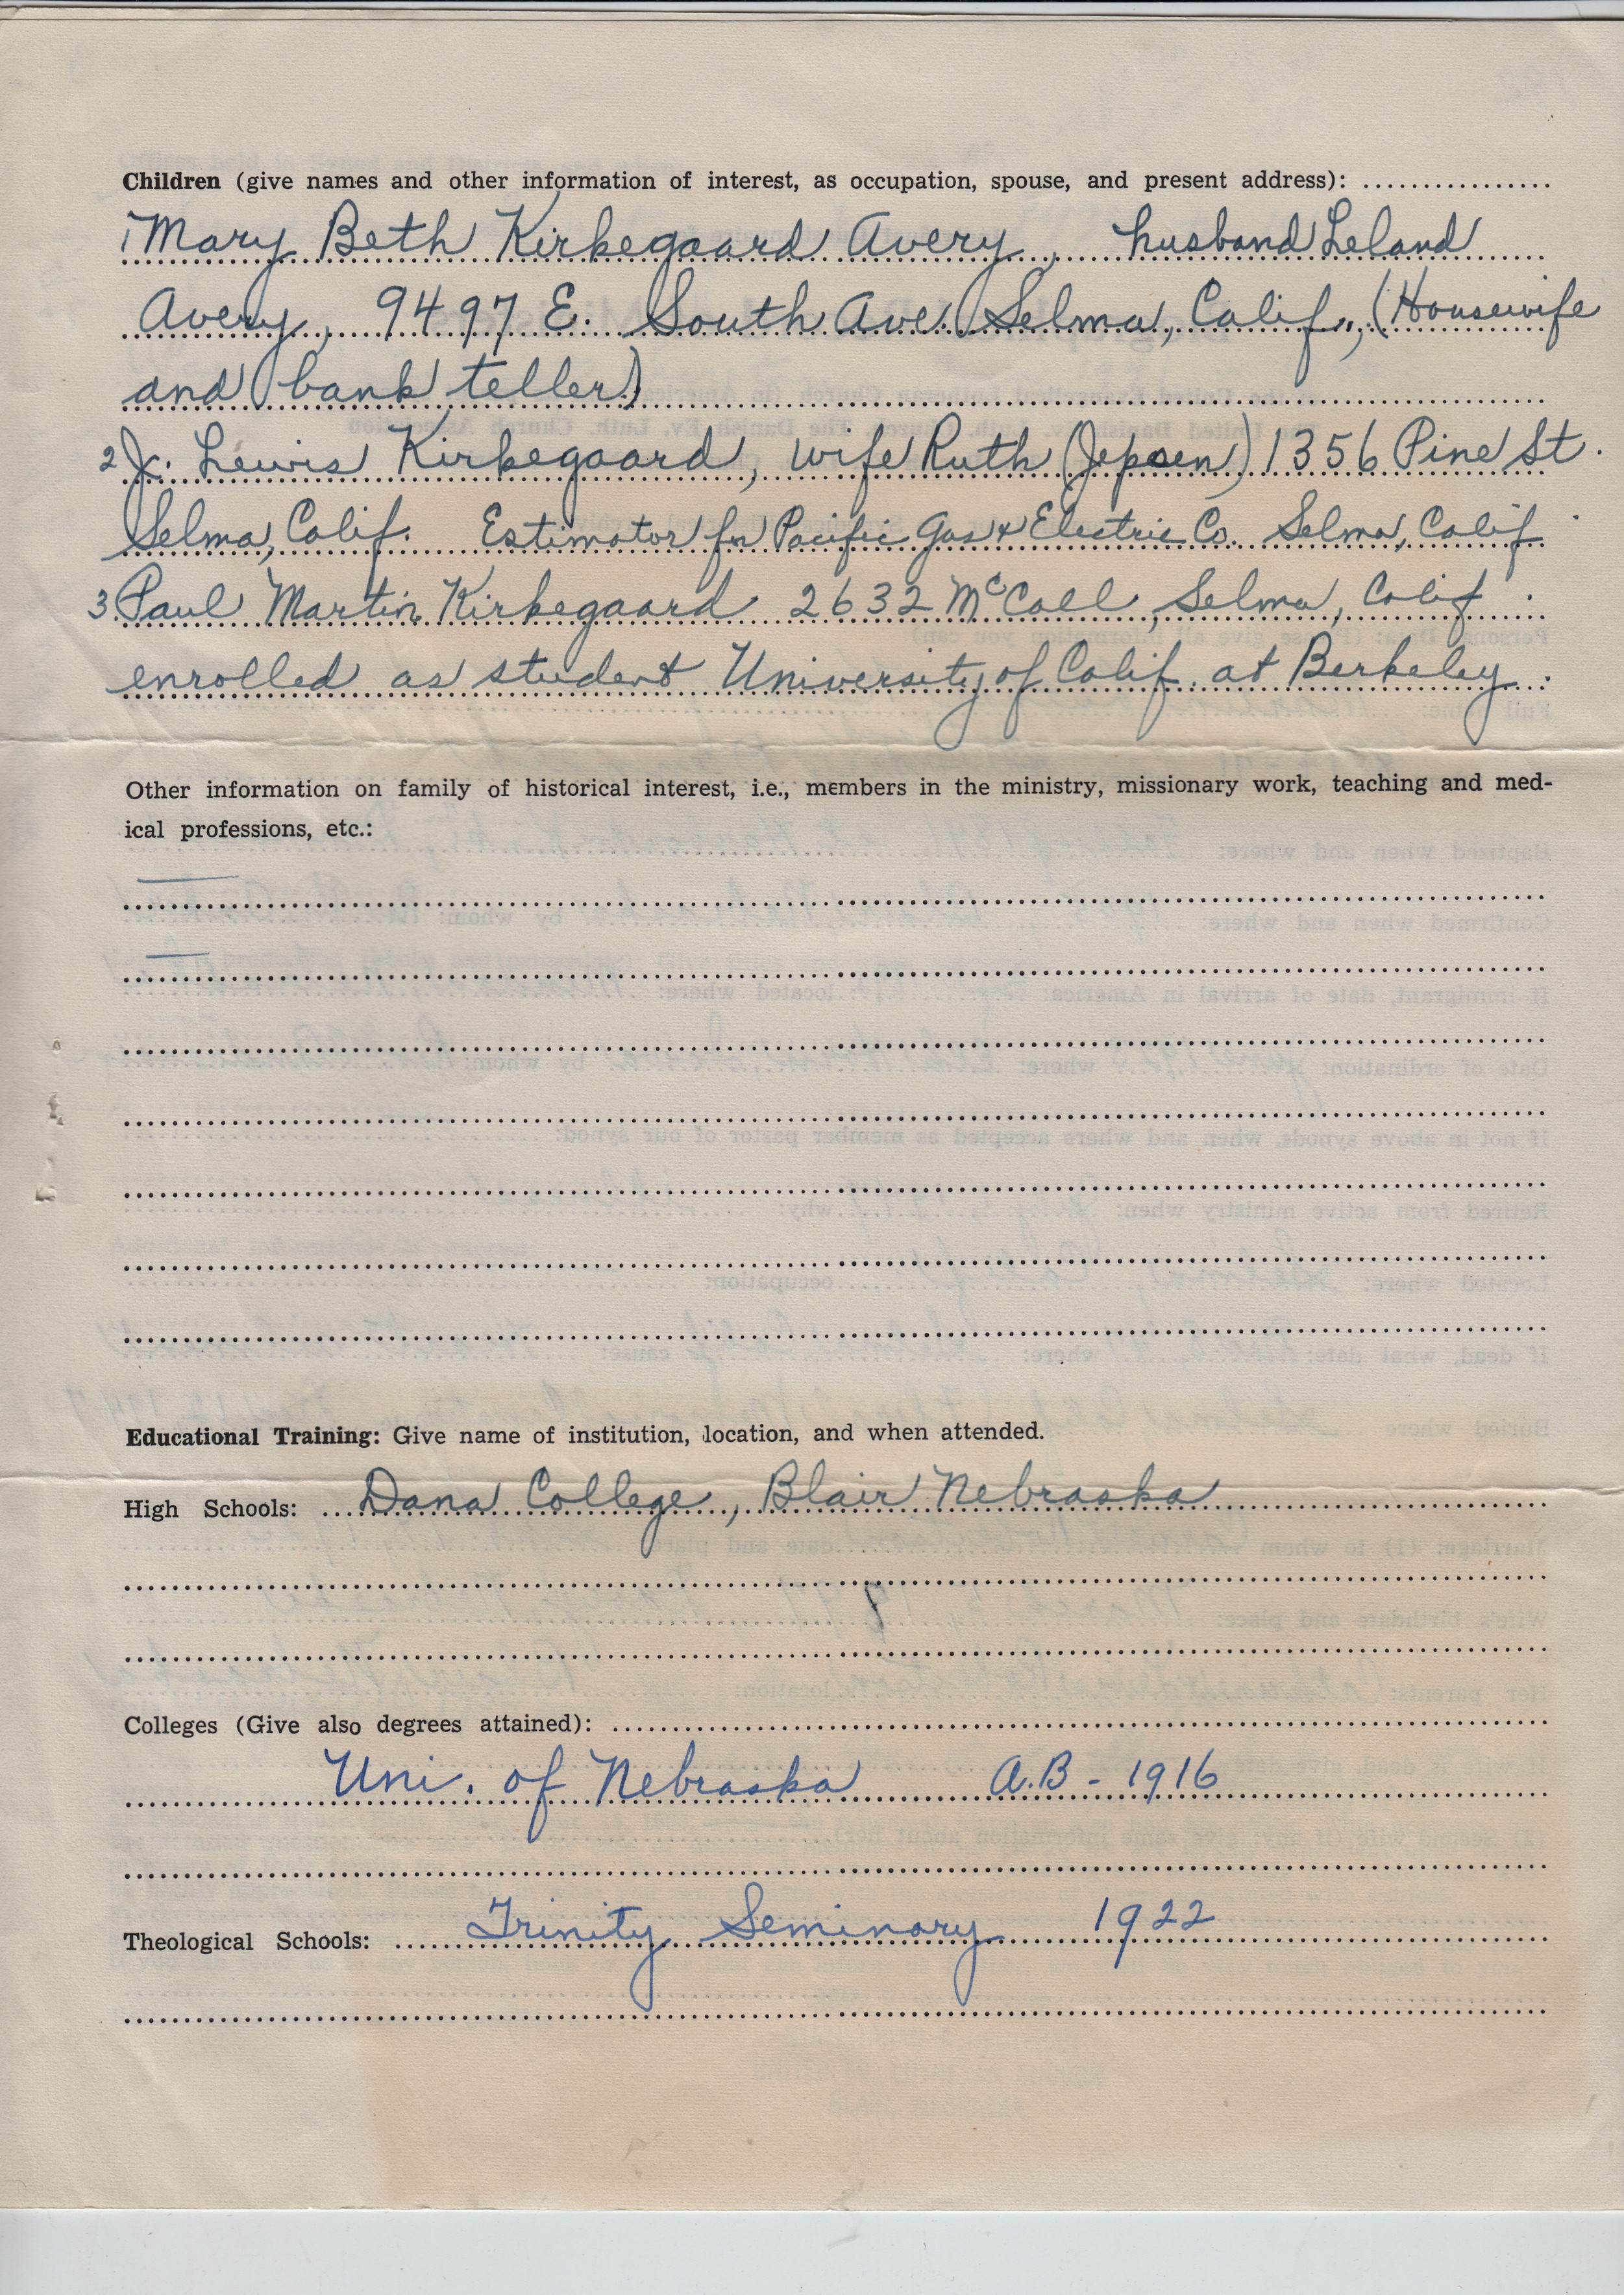 Children (give names and other information of interest, as occupation, spouse, and present address):
1 Mary Beth Kirkegaard Avery, husband Leland
Avery, 9497 E. South Ave. Selma, Calif., (Housewife
and bank teller)
2 J. Lewis Kirkegaard, wife Ruth (Jepsen) 1356 Pine St.
Selma, Calif. Estimator for Pacific Gas & Electric Co. Selma, Calif.
3. Paul Martin Kirkegaard 2632 McCall, Selma, Calif.
enrolled as student University of Calif. at Berkeley.
Other information on family of historical interest, i.e., members in the ministry, missionary work, teaching and med-
ical professions, etc.:
Educational Training: Give name of institution, location, and when attended.
High Schools: Dana College, Blair Nebraska
Colleges (Give also degrees attained):
Uni. of Nebraska A.B - 1916
Theological Schools: Trinity Seminary 1922